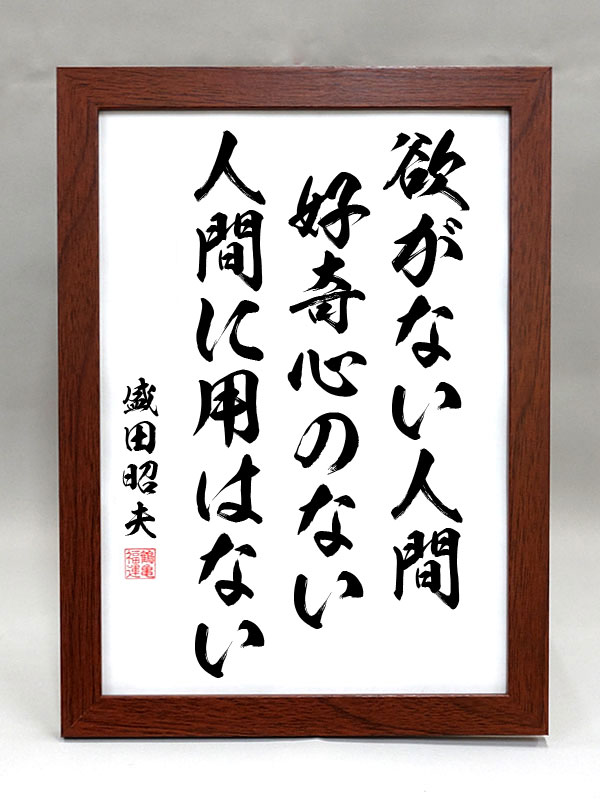 欲がない人間
好奇心のない
人間に用はない
盛田昭夫
鶴亀
福運